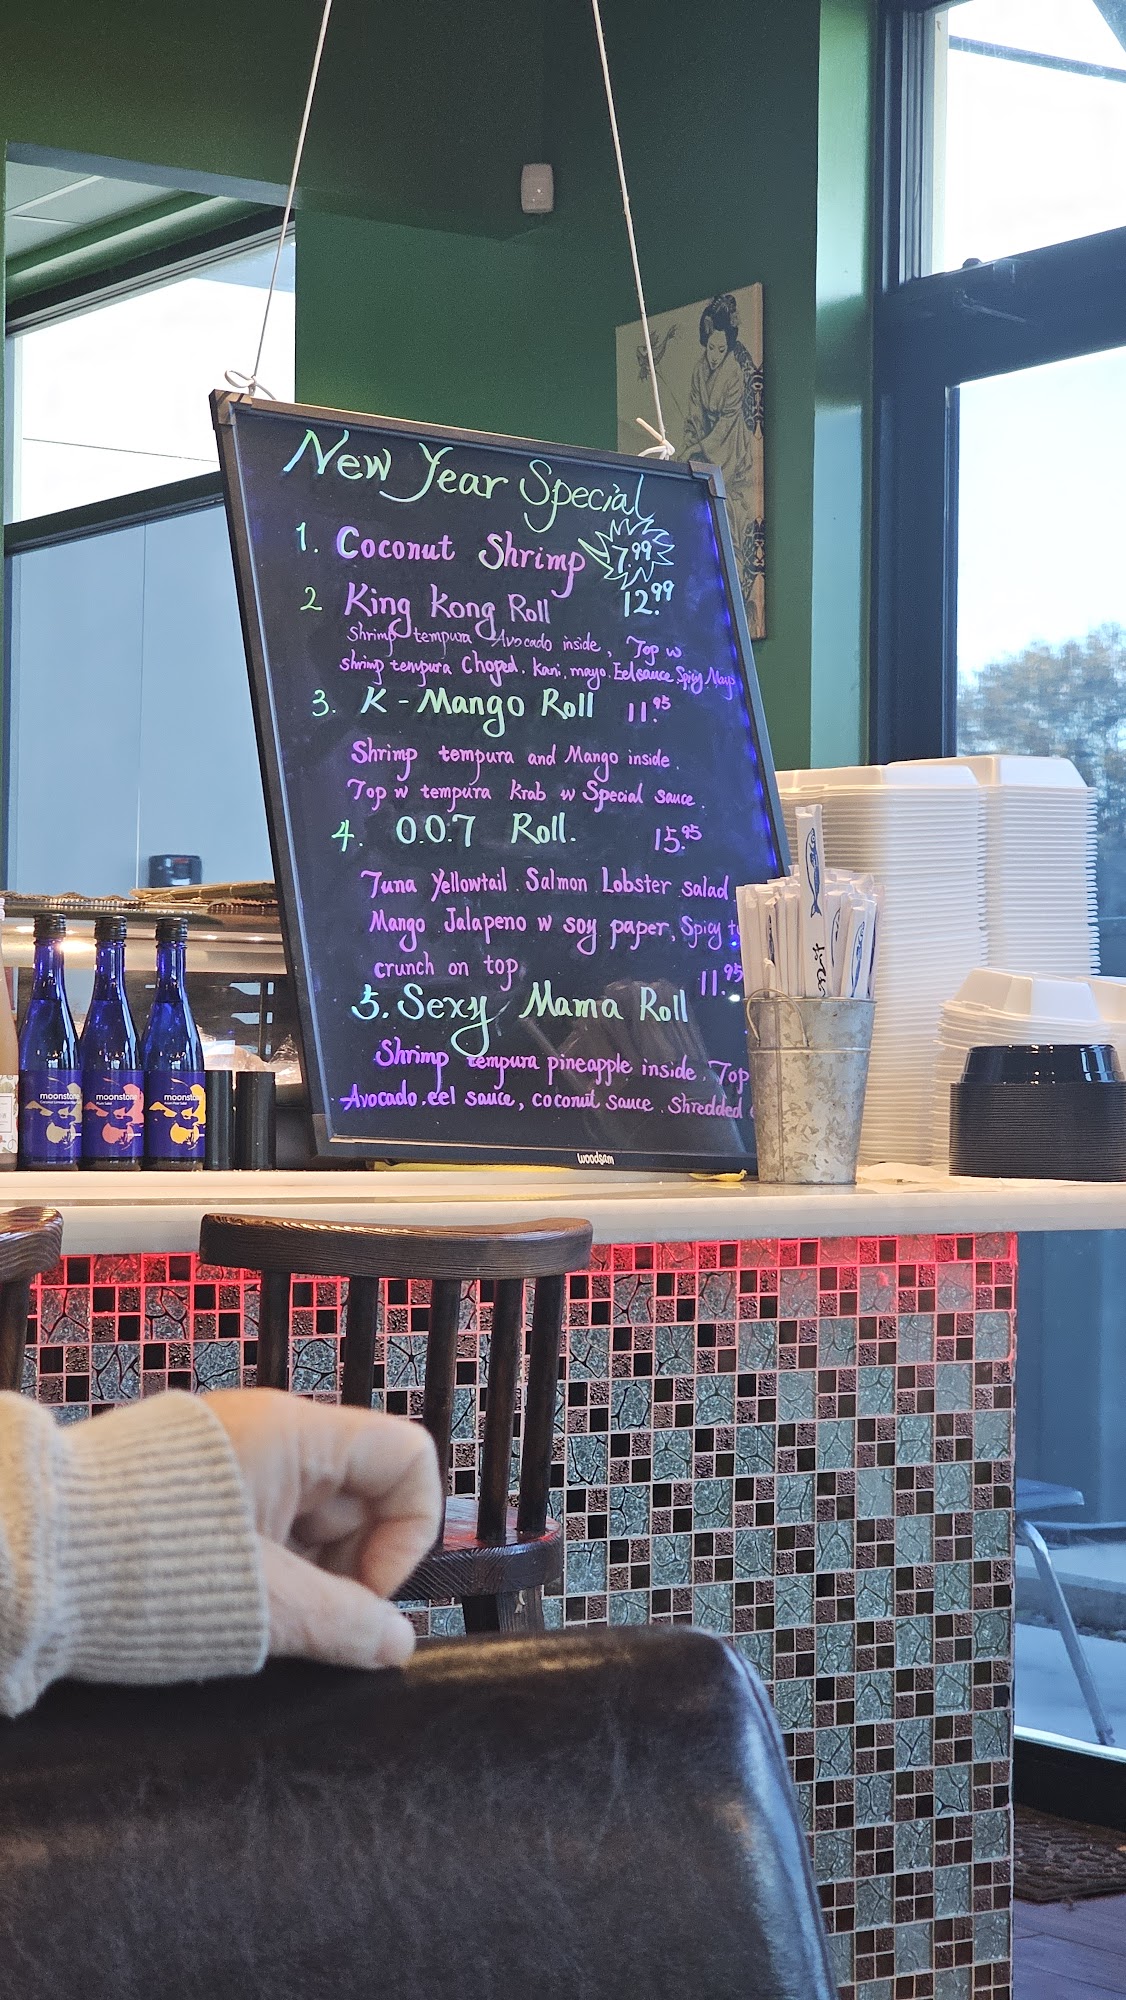 New Year Special
1. Coconut Shrimp 7.99
2 King Kong Roll 12.99
Shrimp tempura Avocado inside, Top w
shrimp tempura Choped. Kani. mayo. Eel sauce Spicy Mayo
3. K - Mango Roll 11.95
Shrimp tempura and Mango inside.
Top w tempura Krab w Special sauce.
4. 0.0.7 Roll. 15.95
Tuna Yellowtail. Salmon Lobster salad
Mango Jalapeno w soy paper, Spicy
crunch on top
11.95
5. Sexy Mama Roll
Shrimp tempura pineapple inside. Top
Avocado. eel sauce, coconut sauce. Shredded
woodsam
moonstone
moonstone
moonstone